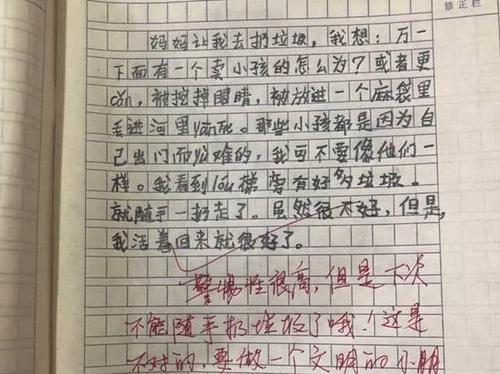 修正栏
妈妈让我去扔垃圾，我想：万一
下面有一个卖小孩的怎么为？或者更
，被挖掉眼睛，被放进一个麻袋里
丢进河里。那些小孩都是因为自
己出门而难的，我可不要像他们一
样。我看到楼梯旁有好多垃圾。
就随手一扔走了。虽然很不好，但是，
我活着回来就很好了。
警惕性很高，但是下次
不能随手扔垃圾了哦！这是
不对的，要做一个文明的小朋